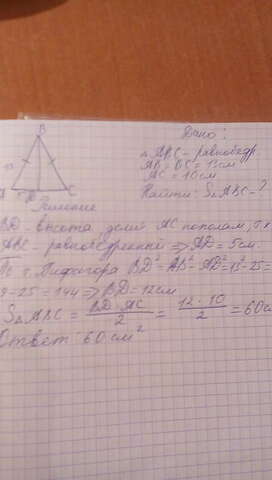 Дано:
B
△ABC - равнобедр.
AB = BC = 13см
AC = 10см
13
Найти: S△ABC - ?
C
Решение
BD - высота делит AC пополам, т.к
ABC - равнобедренный => AD = 5см.
По т. Пифагора BD² = AB² - AD² = 13² - 25 =
9 - 25 = 144 => BD = 12см
S△ABC = BD · AC / 2 = 12 · 10 / 2 = 60см
Ответ: 60 см²